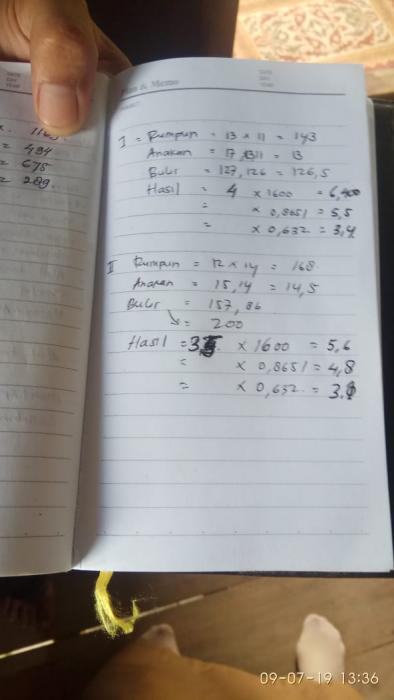 DATE
x. 1169
= 494
= 675
= 289
Plan & Memo
DATE
DAY
YEAR
I = Rumpun = 13 x 11 = 143
Anakan = 17, 13, 11 = 13
Bulir = 127, 126 = 126,5
Hasil = 4 x 1600 = 6,400
= x 0,8651 = 5,5
= x 0,632 = 3,4
II Rumpun = 12 x 14 = 168
Anakan = 15, 14 = 14,5
Bulir = 157, 86
= 200
Hasil = 3,5 x 1600 = 5,6
= x 0,8651 = 4,8
= x 0,632 = 3.
09-07-19 13:36